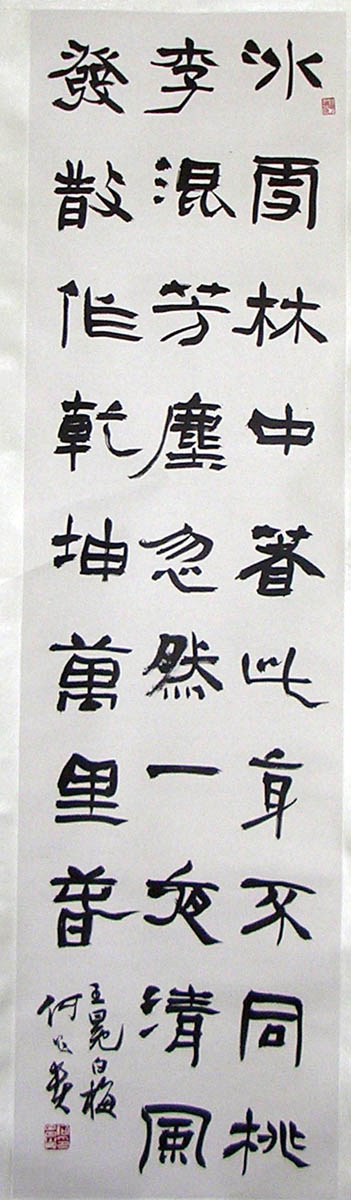 冰雪林中著此身不同桃
李混芳塵忽然一夜清風
發散作乾坤萬里春
王冕白梅
何